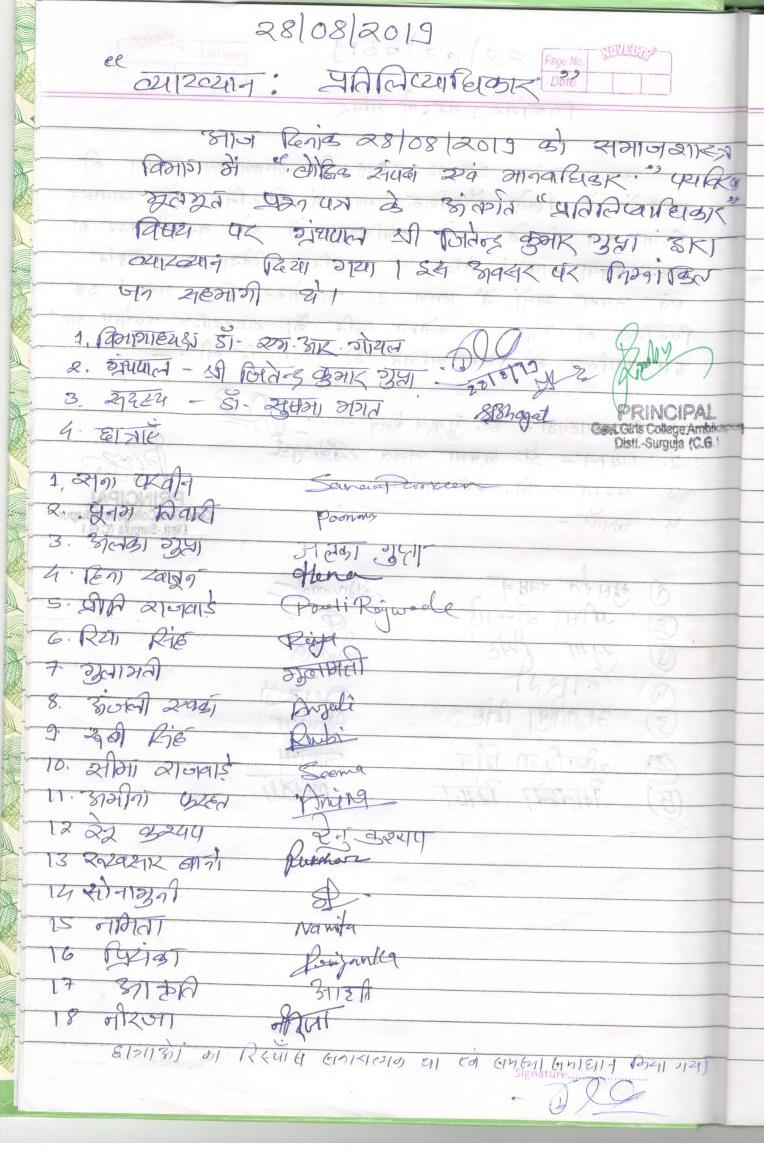 28/08/2019
NOVELTY
Page No.
Date
"व्याख्यान : प्रतिलिप्याधिकार"
आज दिनांक 28/08/2019 को समाजशास्त्र
विभाग में "बौद्धिक संपदा एवं मानवाधिकार"
मूलभूत प्रश्न पत्र के अंतर्गत "प्रतिलिप्याधिकार"
विषय पर ग्रंथपाल श्री जितेन्द्र कुमार गुप्ता द्वारा
व्याख्यान दिया गया। इस अवसर पर निम्नांकित
जन सहभागी थे।
1. विभागाध्यक्ष डॉ. एम. आर. गोयल
2. ग्रंथपाल - श्री जितेन्द्र कुमार गुप्ता
3. सदस्य - डॉ. सुषमा भगत SBhagat
PRINCIPAL
Govt. Girls College Ambikapur
Distt.-Surguja (C.G.)
4. छात्राएँ
1. सना परवीन Sana Parveen
2. पूनम तिवारी Poonam
3. अलका गुप्ता अलका गुप्ता
4. हिना खातून Hena
5. प्रीति राजवाड़े Preeti Rajwade
6. रिया सिंह Riya
7 गुलामती गुलामती
8. अंजली एक्का Anjali
9. रूबी सिंह Rubi
10. सीमा राजवाड़े Seema
11. अमीना फरहत Amina
12 रेनू कश्यप रेनु कश्यप
13 रूखसार बानो Rukhsar
14 सोनामुनी
15 नमिता Namita
16 प्रियंका Priyanka
17 आकृति आकृति
18 नीरजा नीरजा
छात्राओं का रिस्पाँस सकारात्मक था एवं समस्या समाधान किया गया
Signature